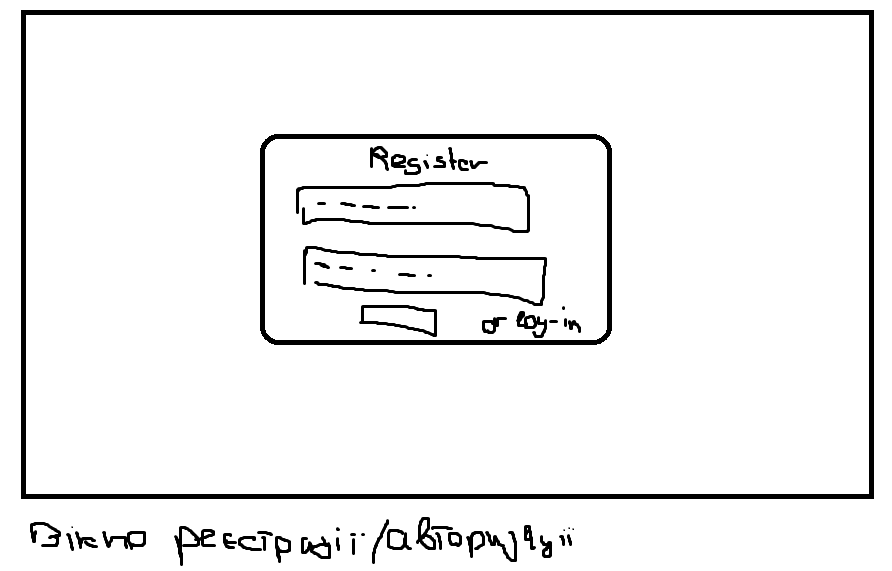 Register
or log-in
Вікно реєстрації/авторизації